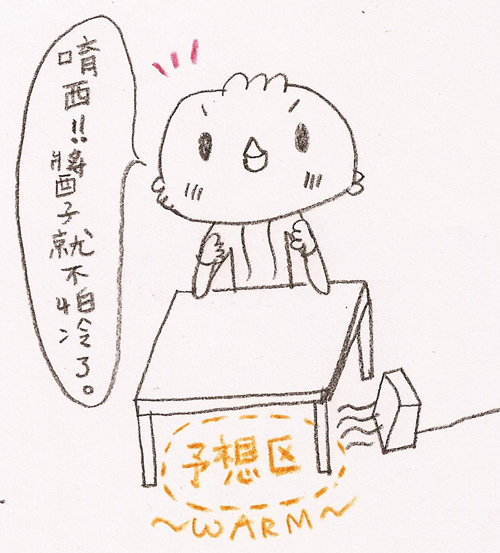 唷西!!醬子就不怕冷了。
予想区
~WARM~